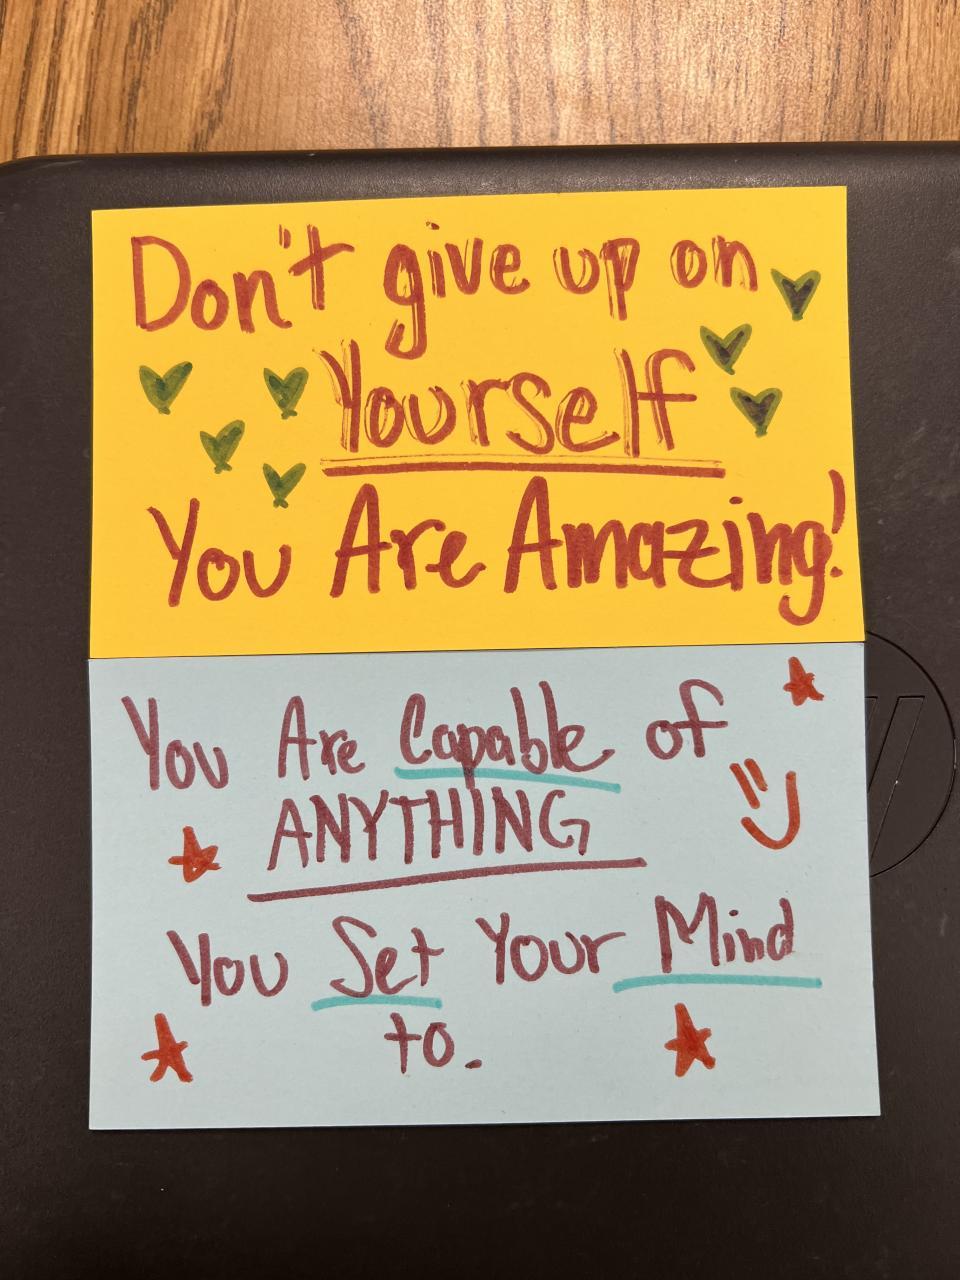 Don't give up on
Yourself
You Are Amazing!
You Are Capable of
ANYTHING
You Set Your Mind
to.